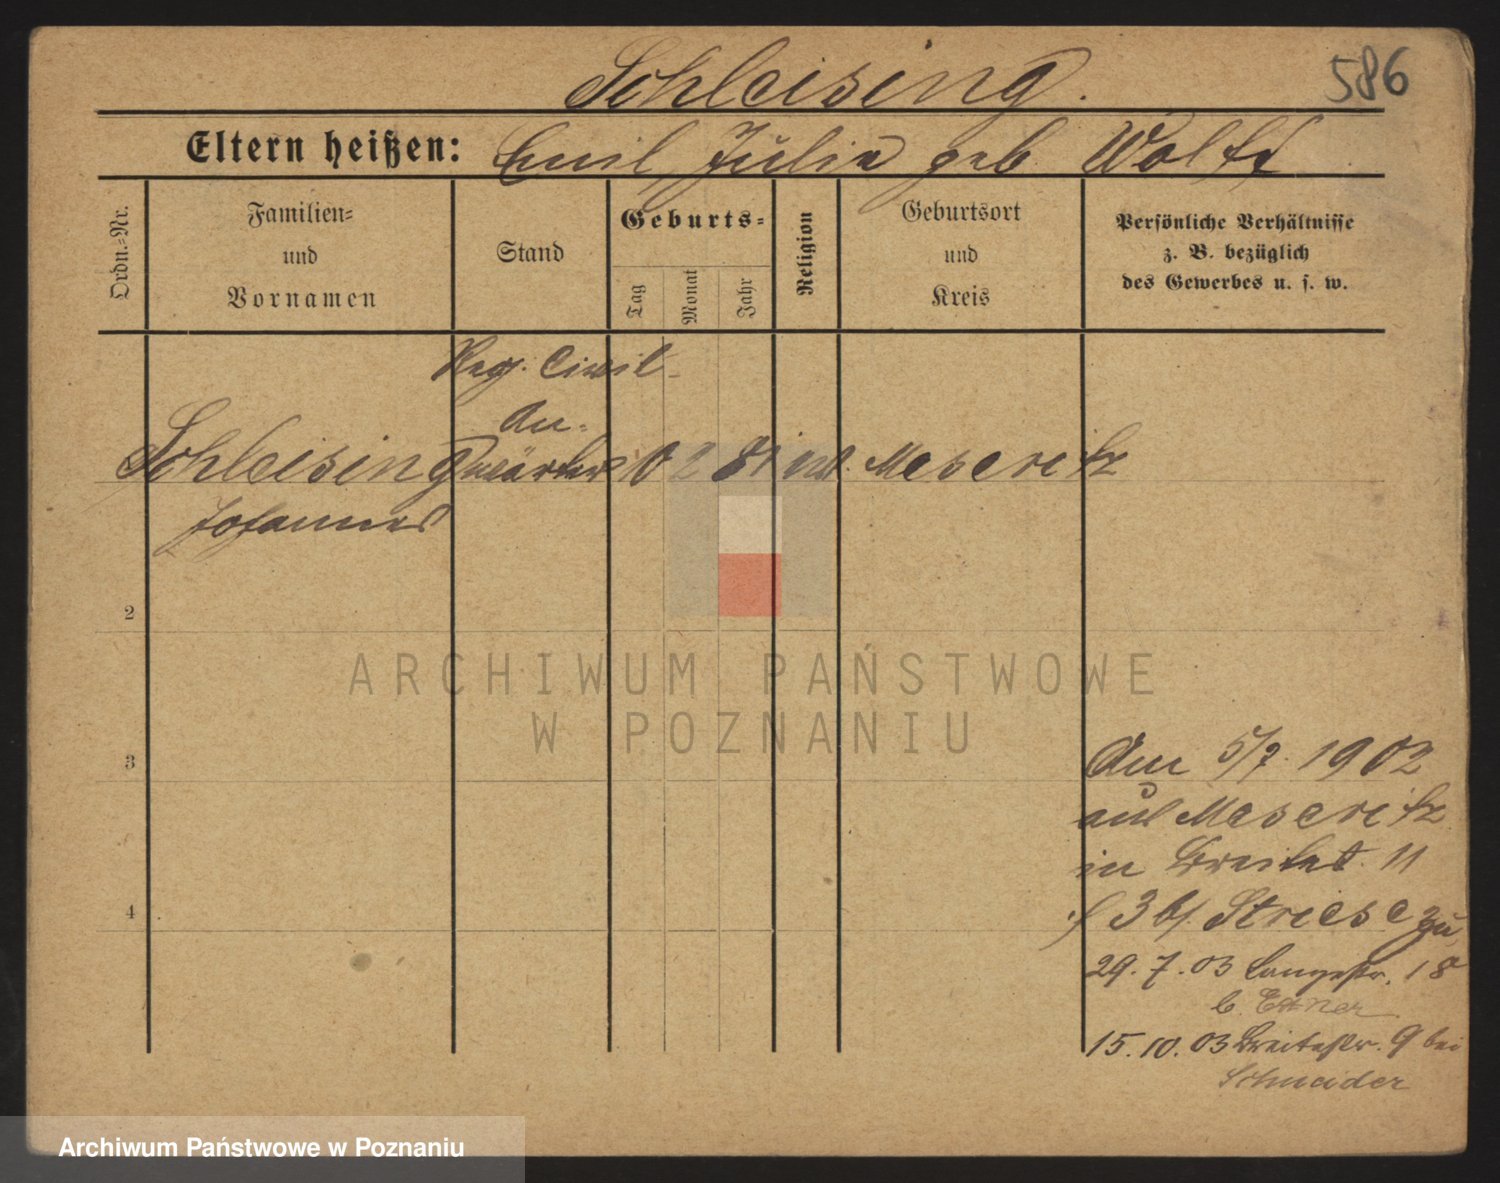 586
Schleising.
Eltern heißen: Emil Julia geb Wolff
Ordn.-Nr.
Familien-
und
Vornamen
Stand
Geburts-
Tag
Monat
Jahr
Religion
Geburtsort
und
Kreis
Persönliche Verhältnisse
z. B. bezüglich
des Gewerbes u. s. w.
Reg. Civil-
An-
Schleising wärter 10 2 81 Meseritz
Johannes
2
3
4
Am 5/7. 1902
aus Meseritz
in Breitest. 11
3 b/. Striese zu
29. 7. 03 Langestr. 18
b. Ettner
15. 10. 03 Breitestr. 9 bei
Schneider
ARCHIWUM PAŃSTWOWE
W POZNANIU
Archiwum Państwowe w Poznaniu